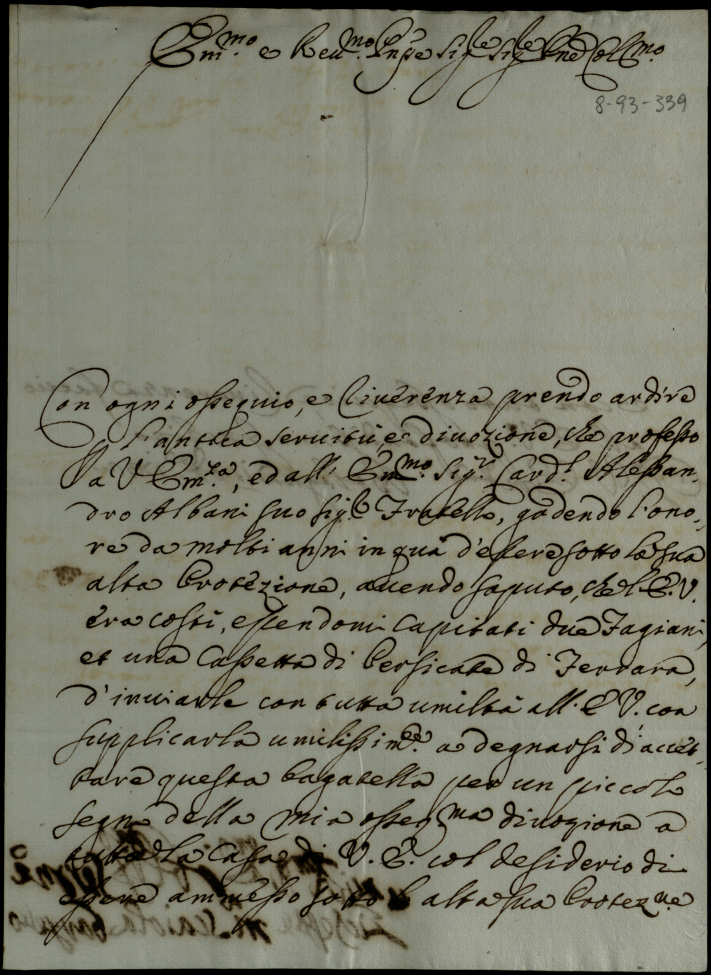 Em.mo e Reu.mo Sig.re Sig.re Col.mo
8-93-339
Con ogni ossequio, e riuerenza prendo ardire
l'antica seruitù e diuozione, che professo
a V Em.za, ed all' Em.mo Sig.r Card.l Alessan-
dro Albani suo Sig.r Fratello, godendo l'ono-
re da molti anni in quà d'essere sotto la sua
alta Protezione, auendo saputo, che l'E.V.
era costì, essendomi capitati due Fagiani,
et una Cassetta di Persicate di Ferrara,
d'inuiarle con tutta umiltà all' E V. con
supplicarla umilissim.te a degnarsi di accet-
tare questa bagatella per un piccolo
segno della mia osseq.ma diuozione a
tutta la Casa di V. E. col desiderio di
essere ammesso sotto l'alta sua Protez.ne